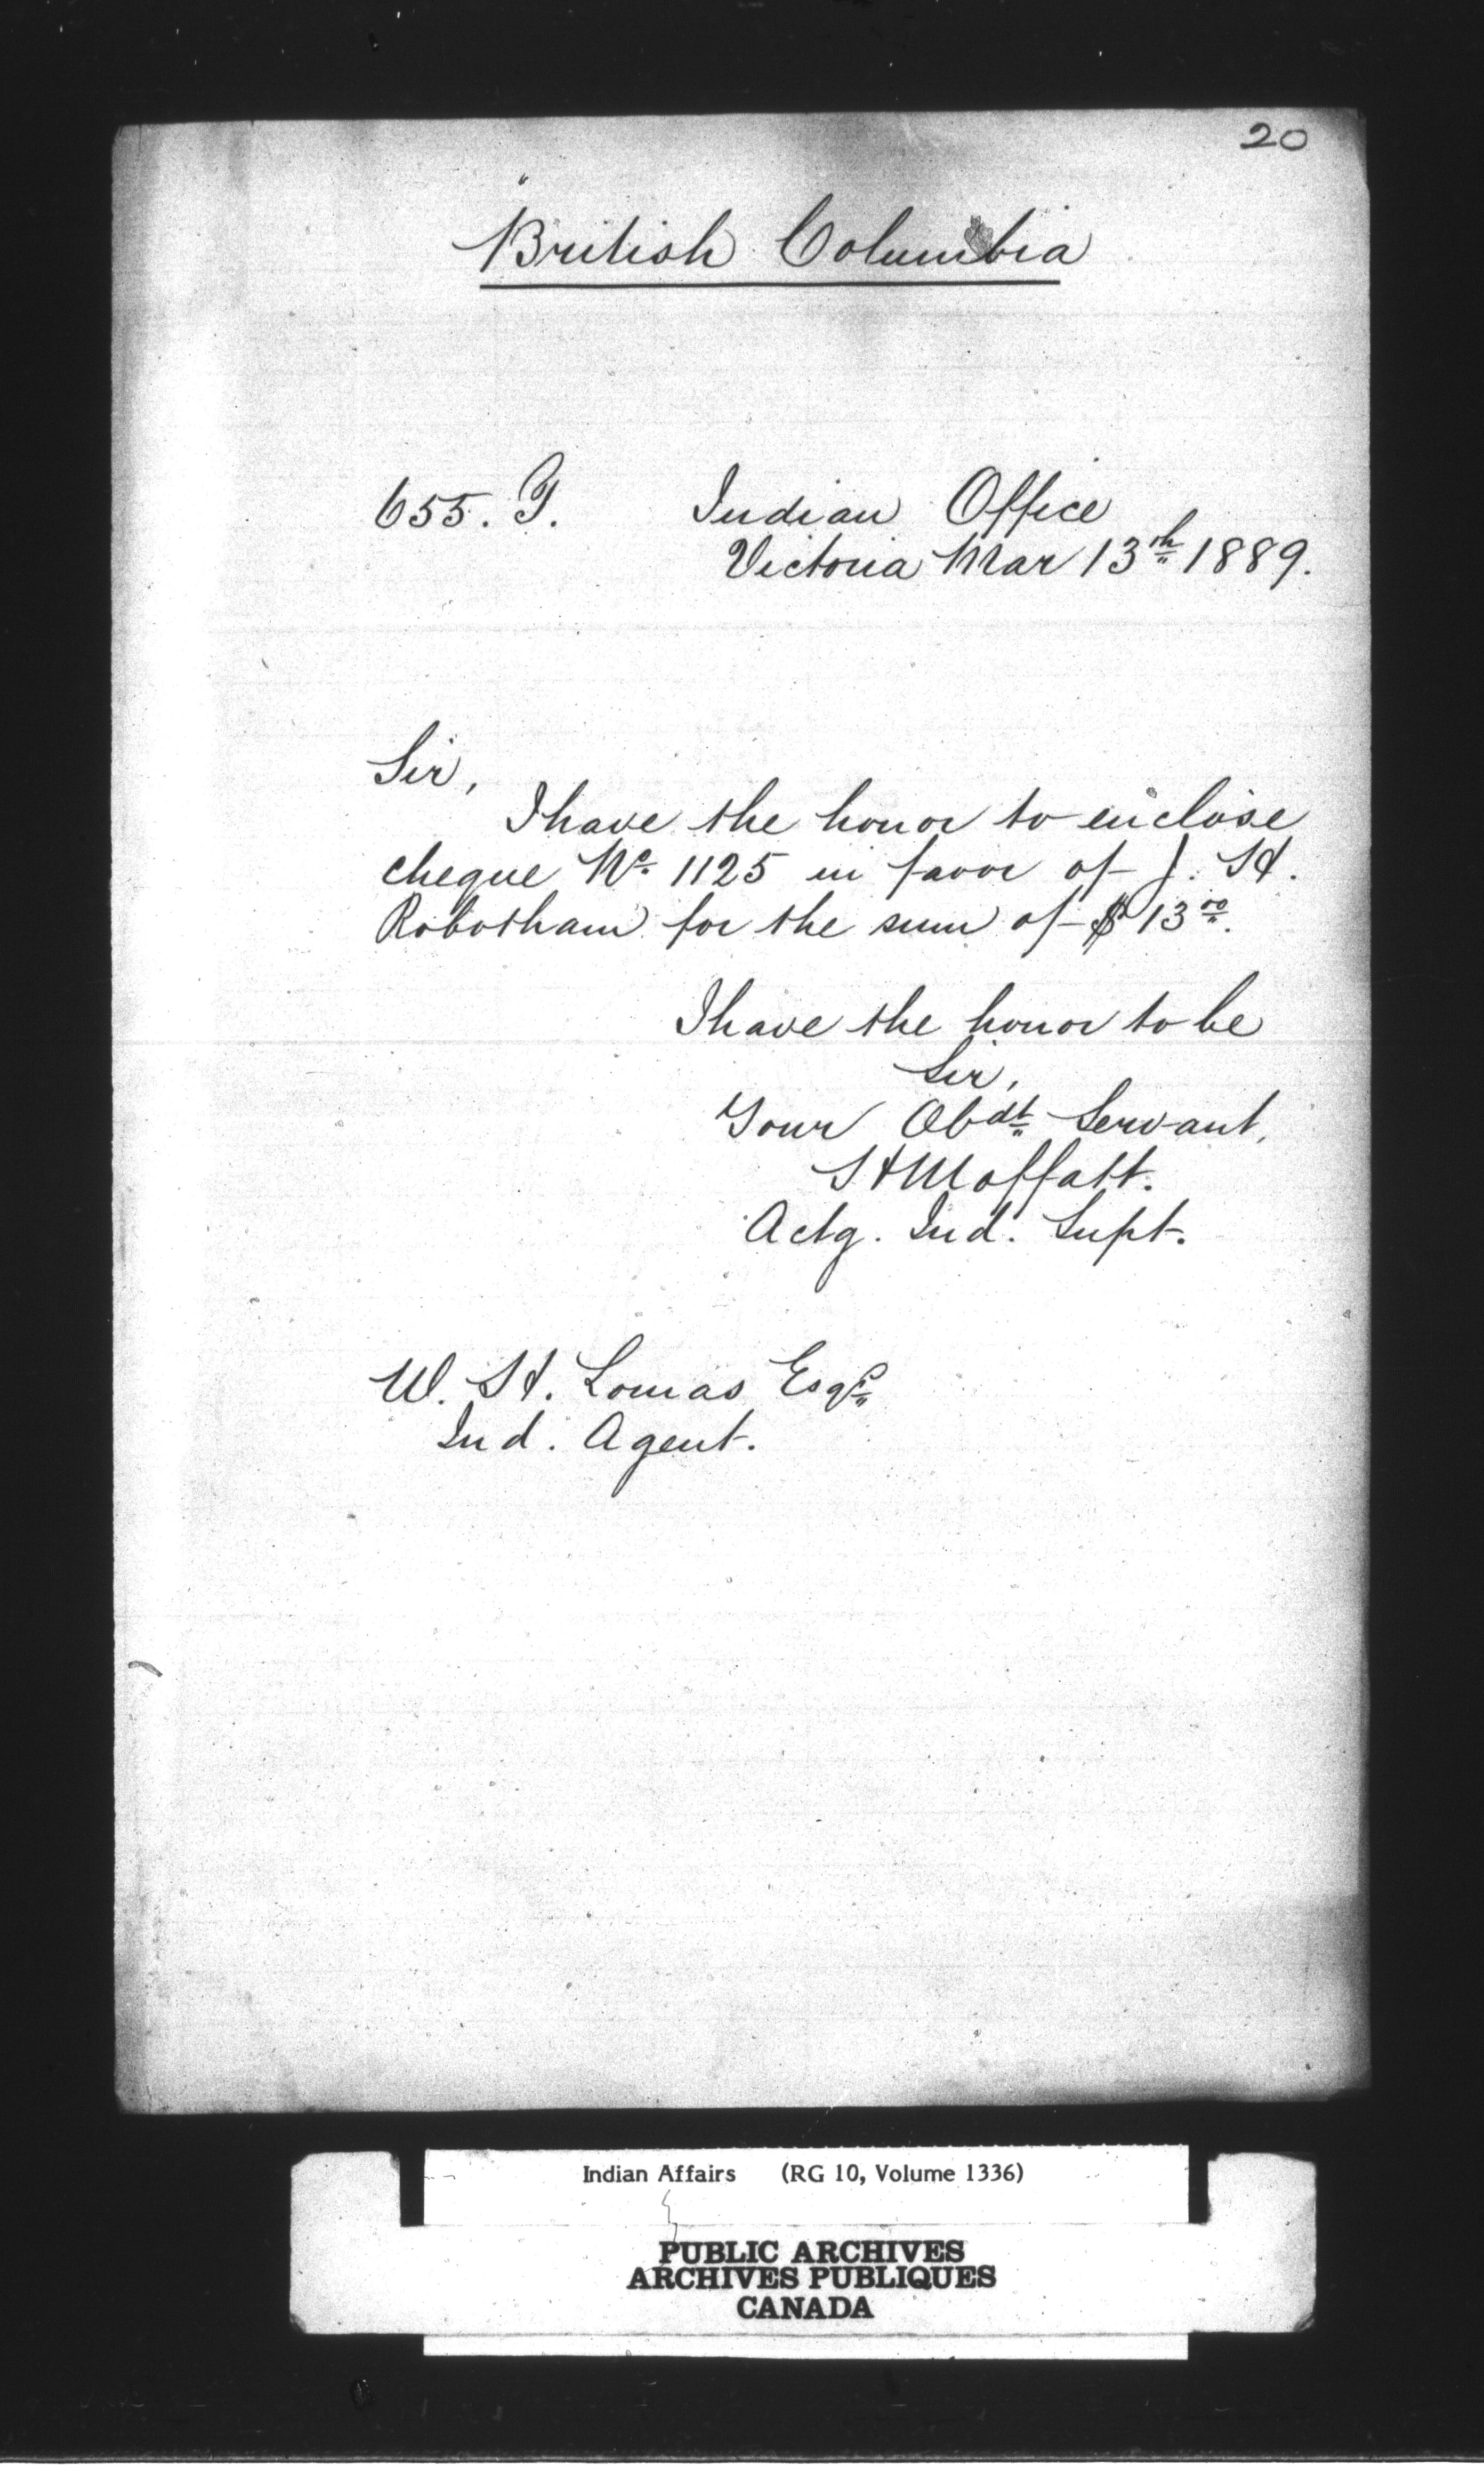 20
British Columbia
655. G. Indian Office
Victoria Mar 13th 1889.
Sir,
I have the honor to enclose
cheque No. 1125 in favor of J. H.
Robotham for the sum of $13.00.
I have the honor to be
Sir,
Your Obdt Servant,
H Moffatt.
Actg. Ind. Supt.
W. H. Lomas Esqre
Ind. Agent.
Indian Affairs (RG 10, Volume 1336)
PUBLIC ARCHIVES
ARCHIVES PUBLIQUES
CANADA